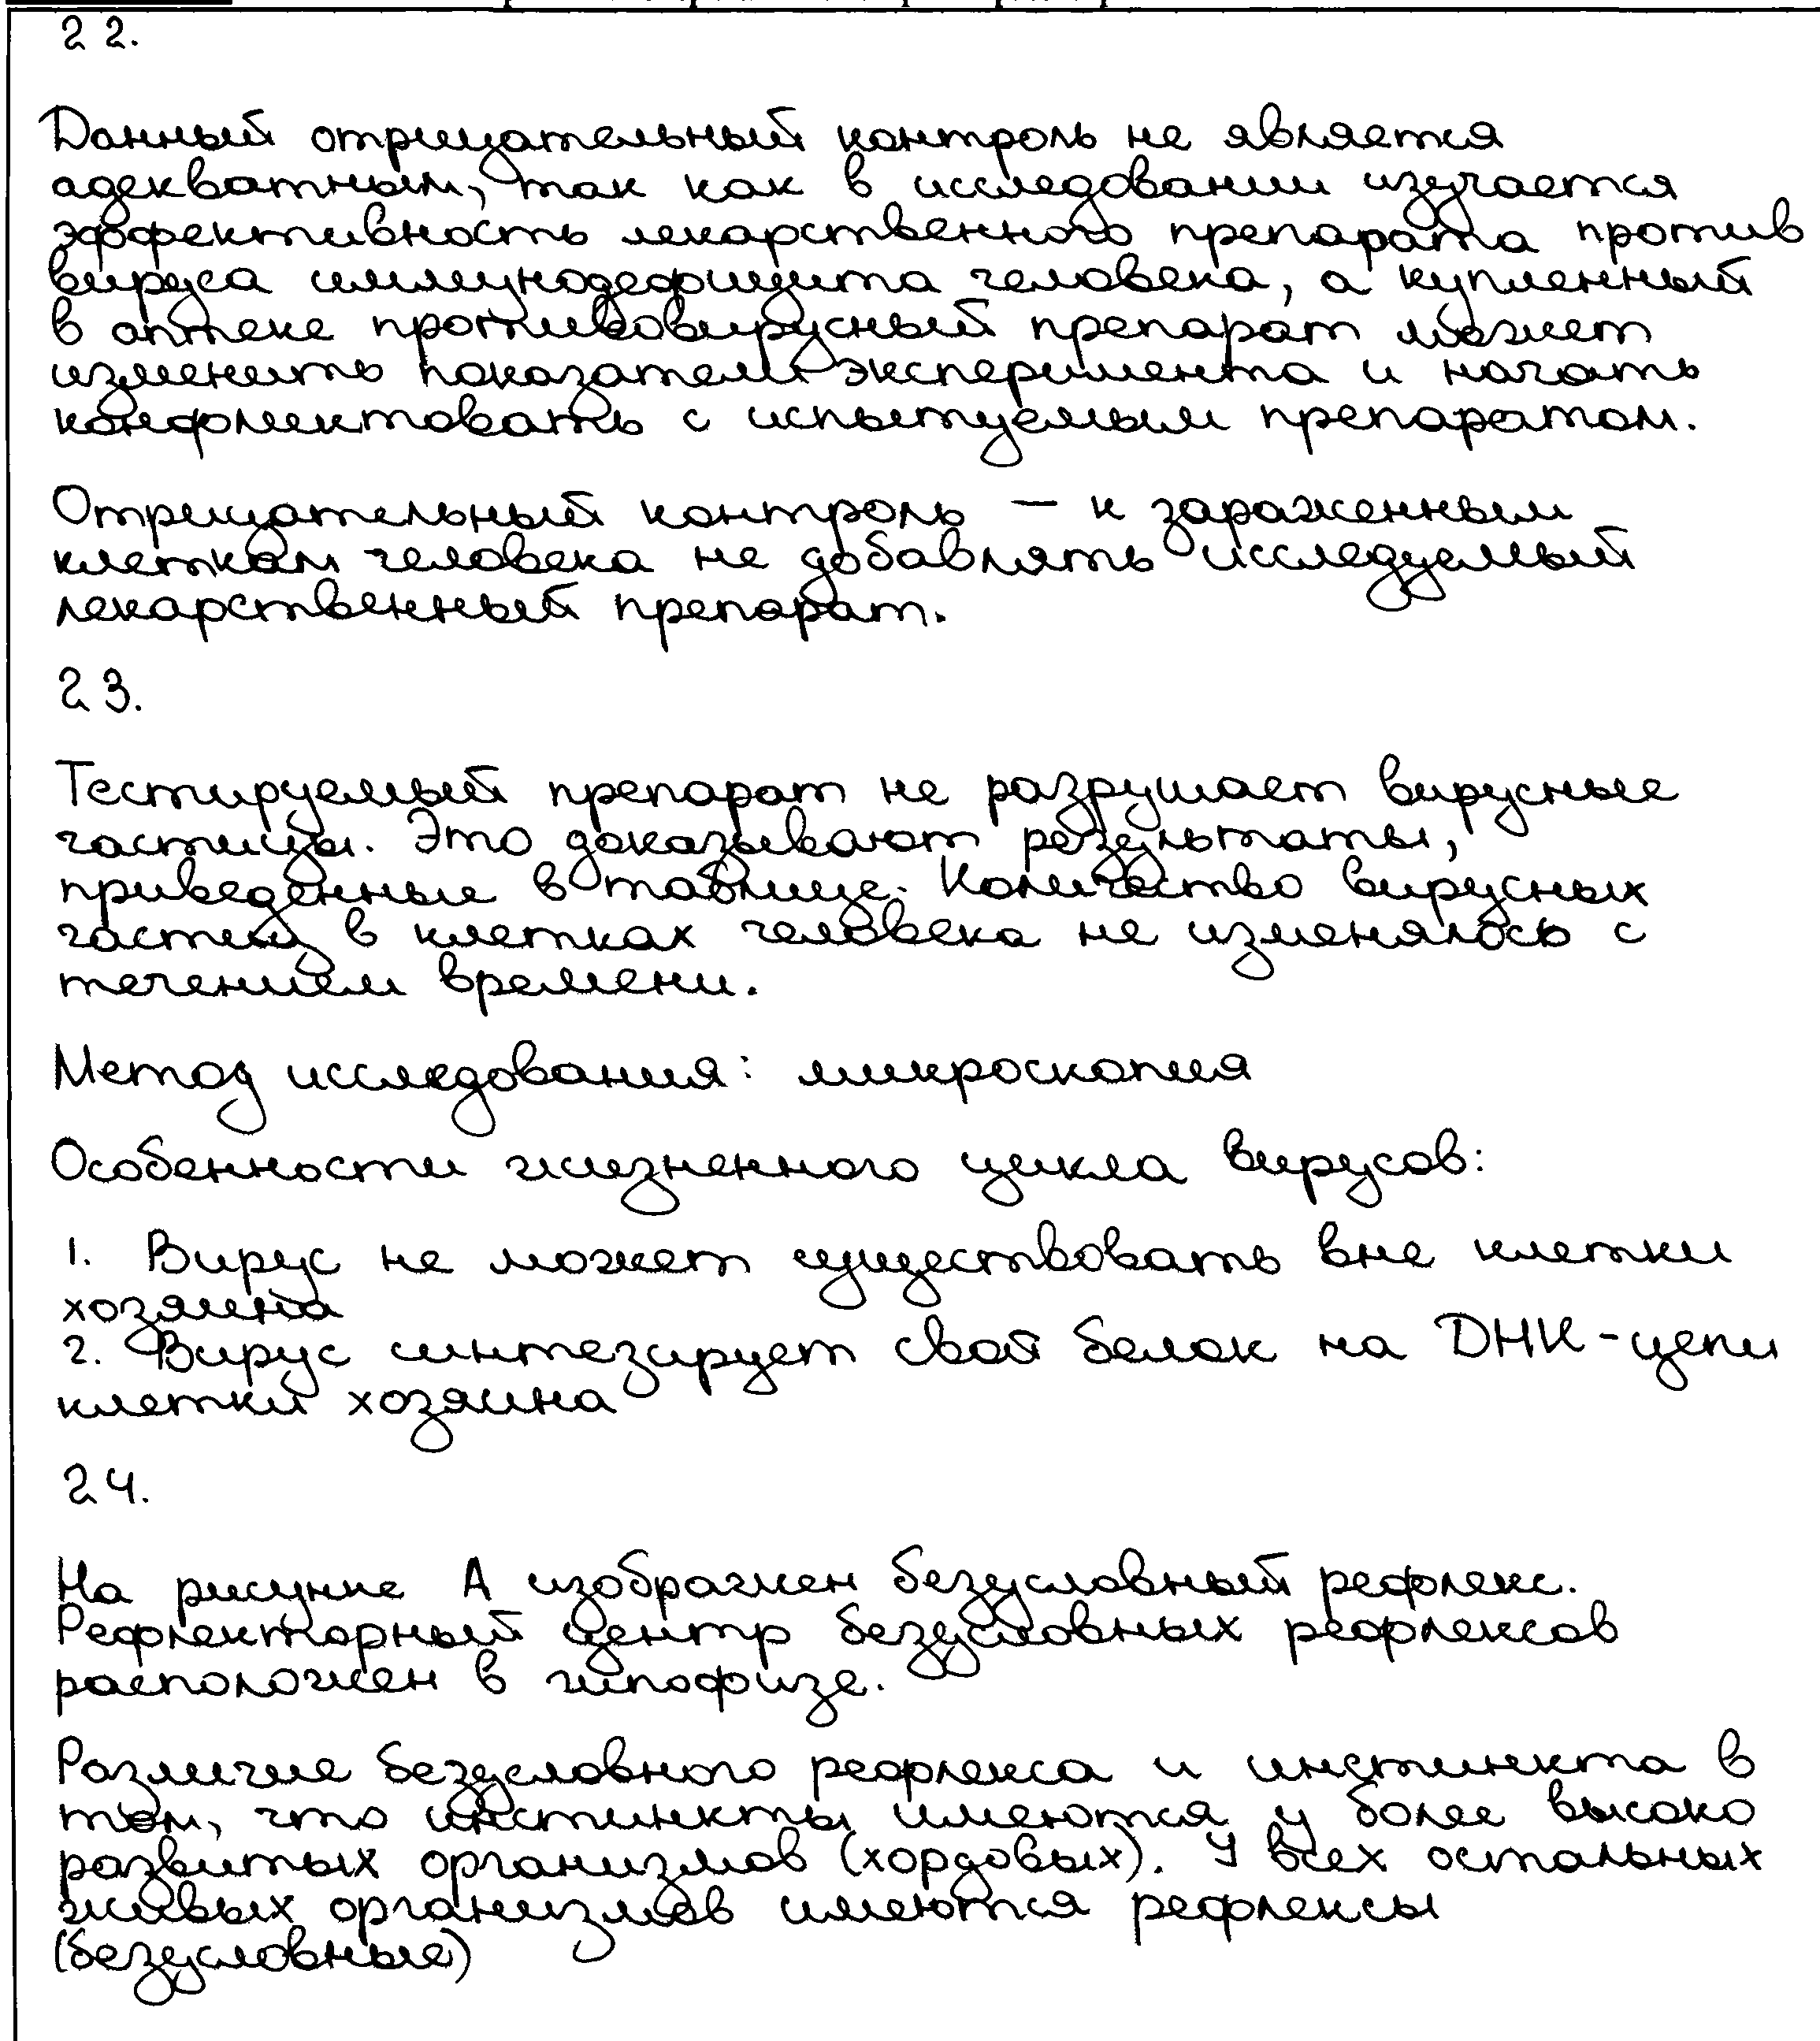 22.
Данный отрицательный контроль не является
адекватным, так как в исследовании изучается
эффективность лекарственного препарата против
вируса иммунодефицита человека, а купленный
в аптеке противовирусный препарат может
изменить показатели эксперимента и начать
конфликтовать с испытуемым препаратом.
Отрицательный контроль – к зараженным
клеткам человека не добавлять исследуемый
лекарственный препарат.
23.
Тестируемый препарат не разрушает вирусные
частицы. Это доказывают результаты,
приведенные в таблице. Количество вирусных
частиц в клетках человека не изменялось с
течением времени.
Метод исследования: микроскопия
Особенности жизненного цикла вирусов:
1. Вирус не может существовать вне клетки
хозяина
2. Вирус синтезирует свой белок на ДНК-цепи
клетки хозяина
24.
На рисунке А изображен безусловный рефлекс.
Рефлекторный центр безусловных рефлексов
расположен в гипофизе.
Различие безусловного рефлекса и инстинкта в
том, что инстинкты имеются у более высоко
развитых организмов (хордовых). У всех остальных
живых организмов имеются рефлексы
(безусловные)